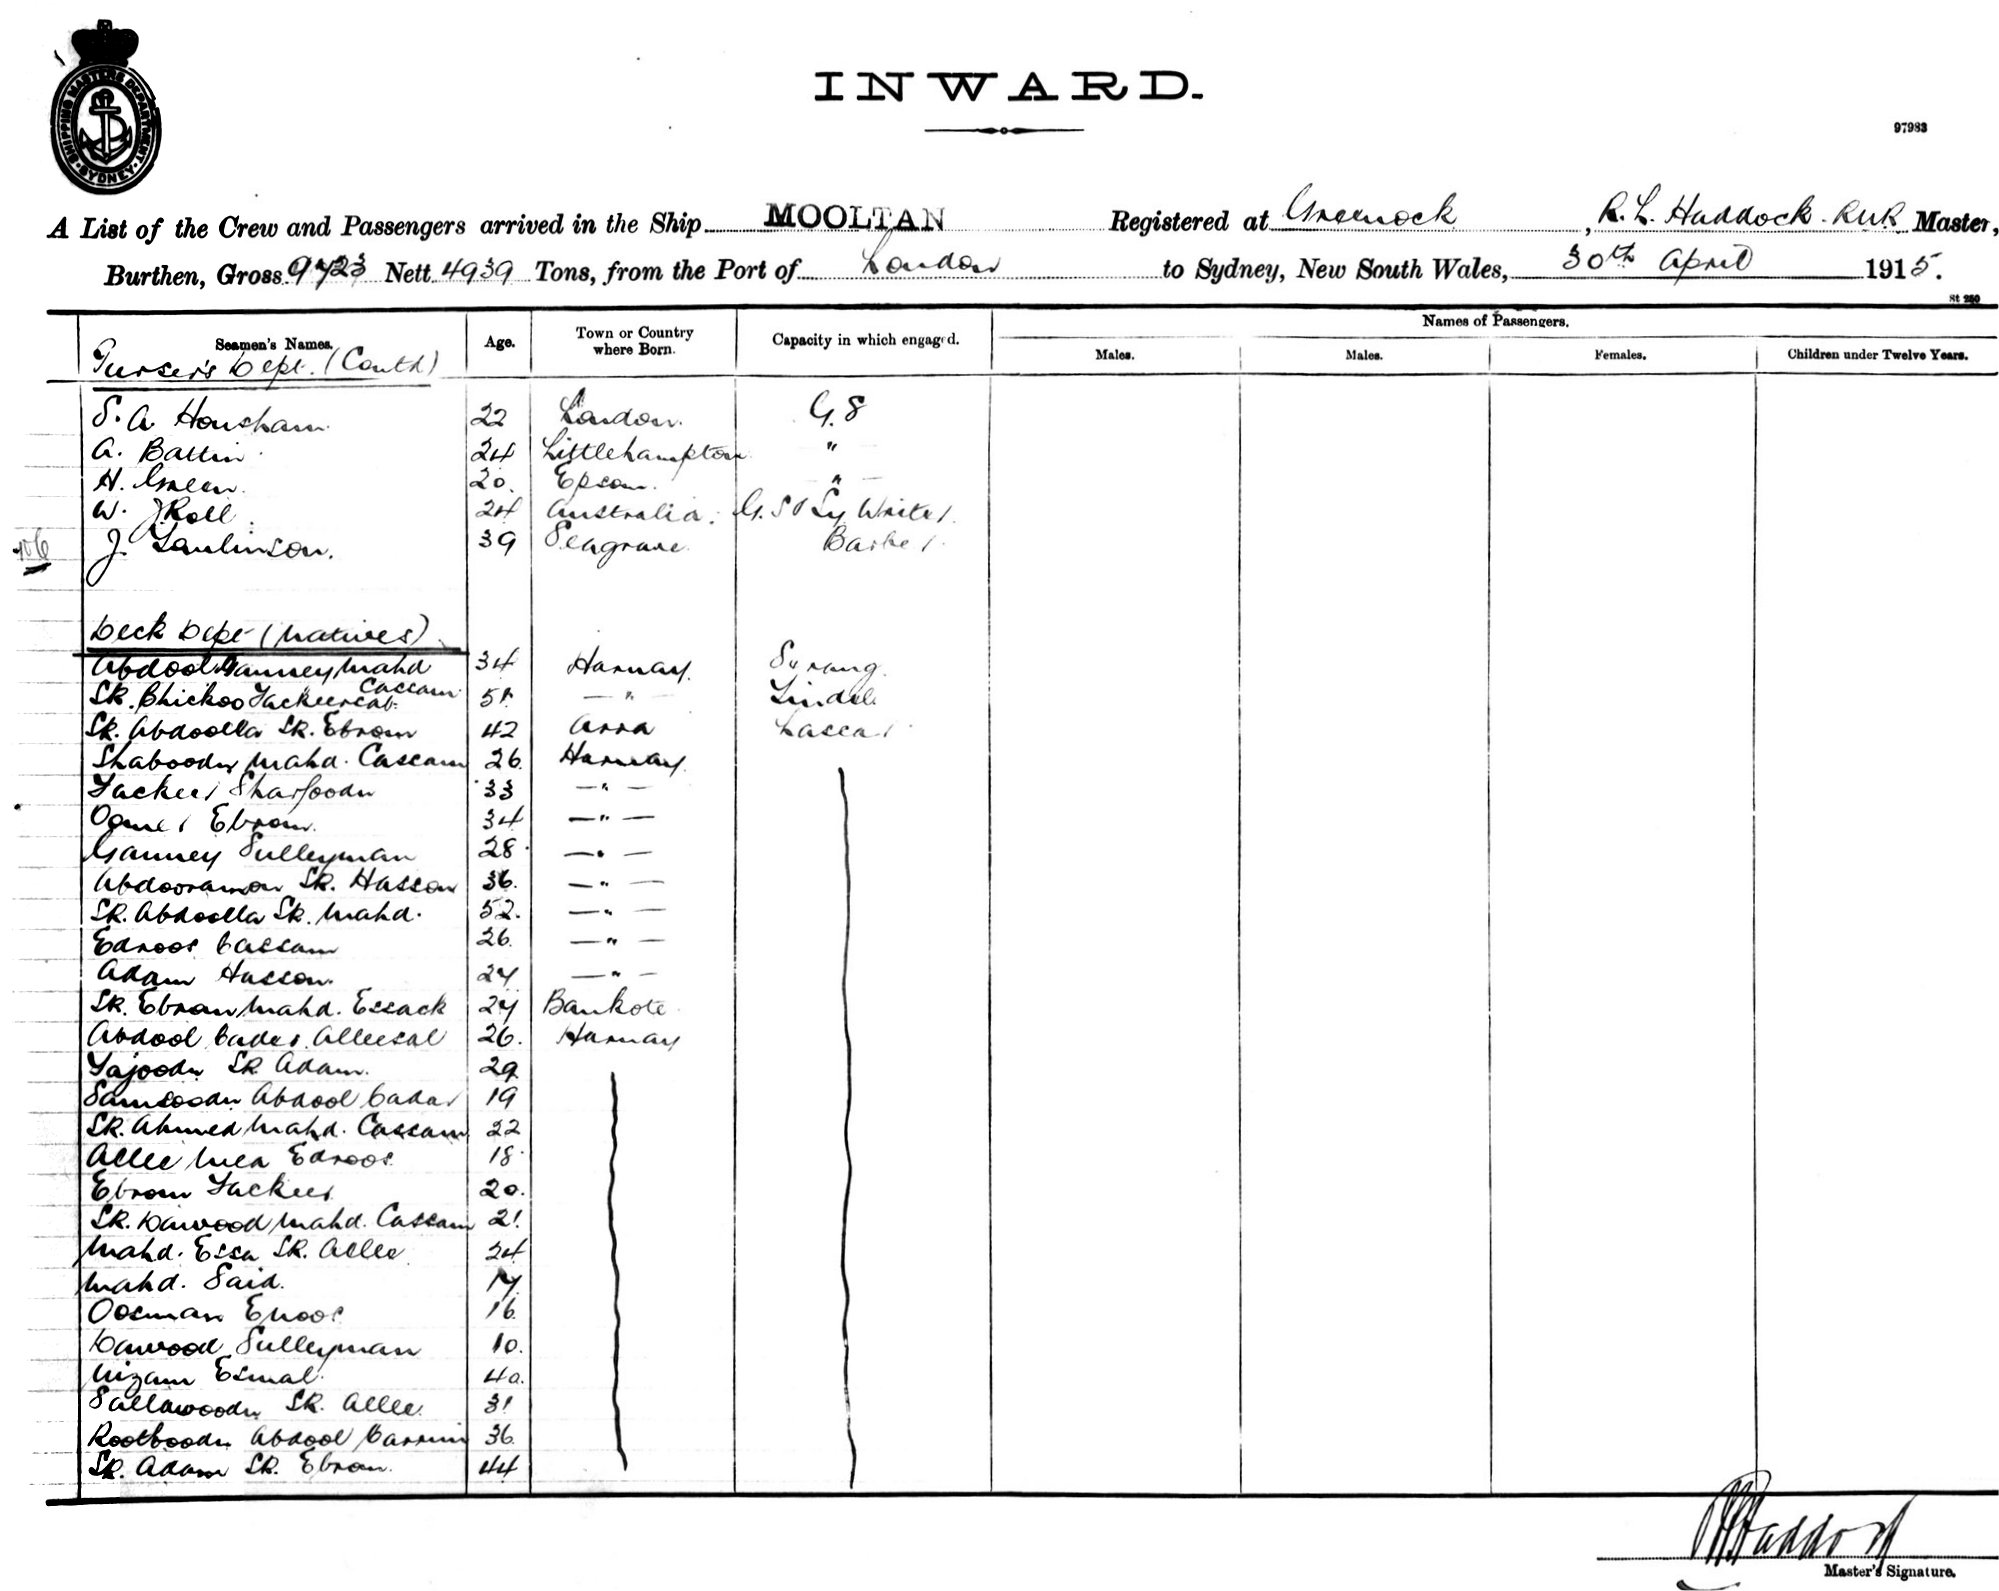 SHIPPING MASTERS DEPARTMENT · SYDNEY ·
INWARD.
97983
A List of the Crew and Passengers arrived in the Ship MOOLTAN Registered at Greenock, R. L. Haddock. RNR Master,
Burthen, Gross 9723 Nett 4939 Tons, from the Port of London to Sydney, New South Wales, 30th April 1915.
St 250
Seamen's Names. Age. Town or Country where Born. Capacity in which engaged. Names of Passengers.
Males. Males. Females. Children under Twelve Years.
Purser's Dept. (Contd)
S. A. Housham. 22 London. G. S
A. Battin 24 Littlehampton "
H. Green. 20. Epsom. "
W. J. Roll 24 Australia. G. S
106 J. Tomlinson. 39 Seagrave Barber.
Deck Dept (Natives)
Abdool Ganney Mahd 34 Harnay. Serang
Cassam
Sk. Bhickoo Fackeersab. 51. — " — Tindal
Sk. Abdoolla Sk. Ebrom 42 Arra Lascar
Shaboodn Mahd. Cassam 26. Harnay
Fackeer Sharfoodn 33 — " —
Oomer Ebrom. 34 — " —
Ganney Sulleyman 28 — " —
Abdooramon Sk. Hasson 36. — " —
Sk. Abdoolla Sk. Mahd. 52. — " —
Edroos Cassam 26. — " —
Adam Hasson. 27 — " —
Sk. Ebrom Mahd. Essack 27 Bankote
Abdool Cader Alleesab 26. Harnay
Tajoodn Sk Adam. 29
Samsoodn Abdool Cadar 19
Sk. Ahmed Mahd. Cassam 22
Allee Mea Edroos 18
Ebrom Fackeer 20.
Sk. Dawood Mahd. Cassam 21.
Mahd. Essa Sk. Allee 24
Mahd. Said. 17
Oosman Enoos 16
Dawood Sulleyman 10.
Nizam Esmal. 40.
Sallawoodn Sk. Allee. 31
Rootboodn Abdool Carrim 36
Sk. Adam Sk. Ebrom. 44
R L Haddock
Master's Signature.